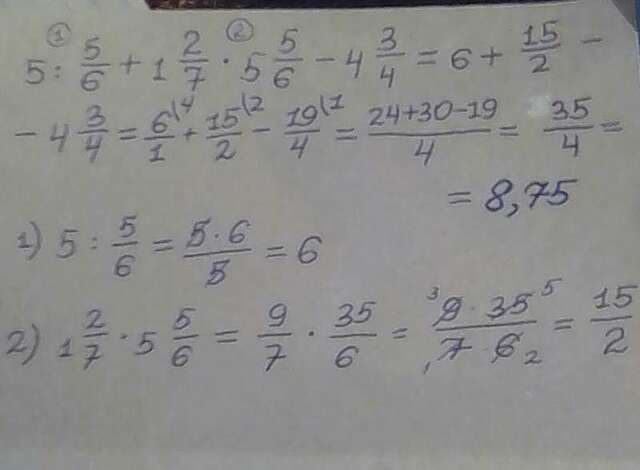 ① ②
5 : 5/6 + 1 2/7 · 5 5/6 - 4 3/4 = 6 + 15/2 -
- 4 3/4 = 6\4/1 + 15\2/2 - 19\1/4 = 24+30-19/4 = 35/4 =
= 8,75
1) 5 : 5/6 = 5·6/5 = 6
2) 1 2/7 · 5 5/6 = 9/7 · 35/6 = ³9·35⁵/₁7·6₂ = 15/2